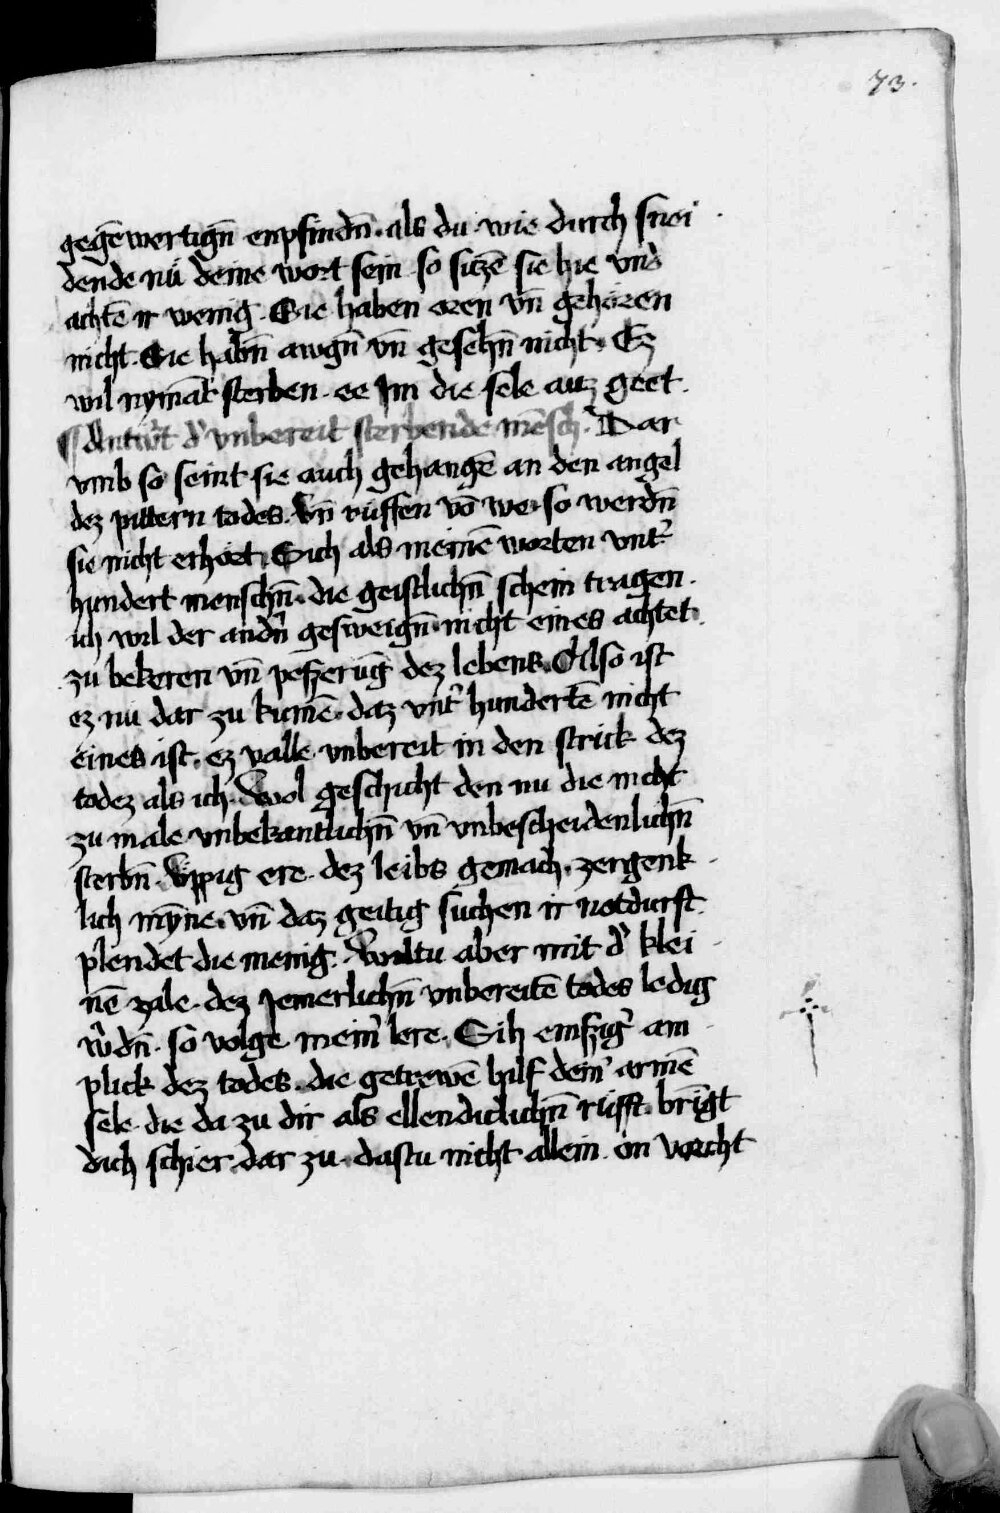 73.
gegēwertign̄ enpfindn̄. als du wie durch snei
dende nu deine wort sein. so sitzē sie hie vnd
achtē ir wenig. Sie haben oren vn̄ gehören
nicht. Sie habn̄ awgn̄ vn̄ gesehn̄ nicht. Ez
wil nymāt sterben. ee Jm die sele auz geet.
¶ Antw̓t d̓ vnbereit sterbende mēsch. Dar
vmb so seint sie auch gehangē an den angel
dez pittern todes. Vn̄ rüffen vō we. so werdn̄
sie nicht erhört. Sich als meinē worten vnt̓
hundert menschn̄. die geistlichn̄ schein tragen.
ich wil der andn̓ gesweign̄. nicht eines achtet.
zu bekeren vn̄ peszerūg dez lebens. Also ist
ez nu dar zu kumē. daz vnt̓ hundertē nicht
eines ist. ez valle vnbereit in den strick dez
todez als ich. Wol geschicht den nu die nicht
zu male vnbekantlichn̄ vn̄ vnbescheidenlichn̄
sterbn̄. Vppig ere. dez leibs gemach. zergenk
lich mȳne. vn̄ daz geitig suchen ir notdurft.
plendet die menig. Wiltu aber mit d̓ klei
nē zale. dez Jemerlichn̄ vnbereitē todes ledig
w̓dn̄. so volge mein̓ lere. Sih emszig̓ an
plick dez todes. die getrewē hilf dein̓ armē
sele. die da zu dir als ellendiclichn̄ rüfft. brīgt
dich schier dar zu. dastu nicht allein. on vorcht